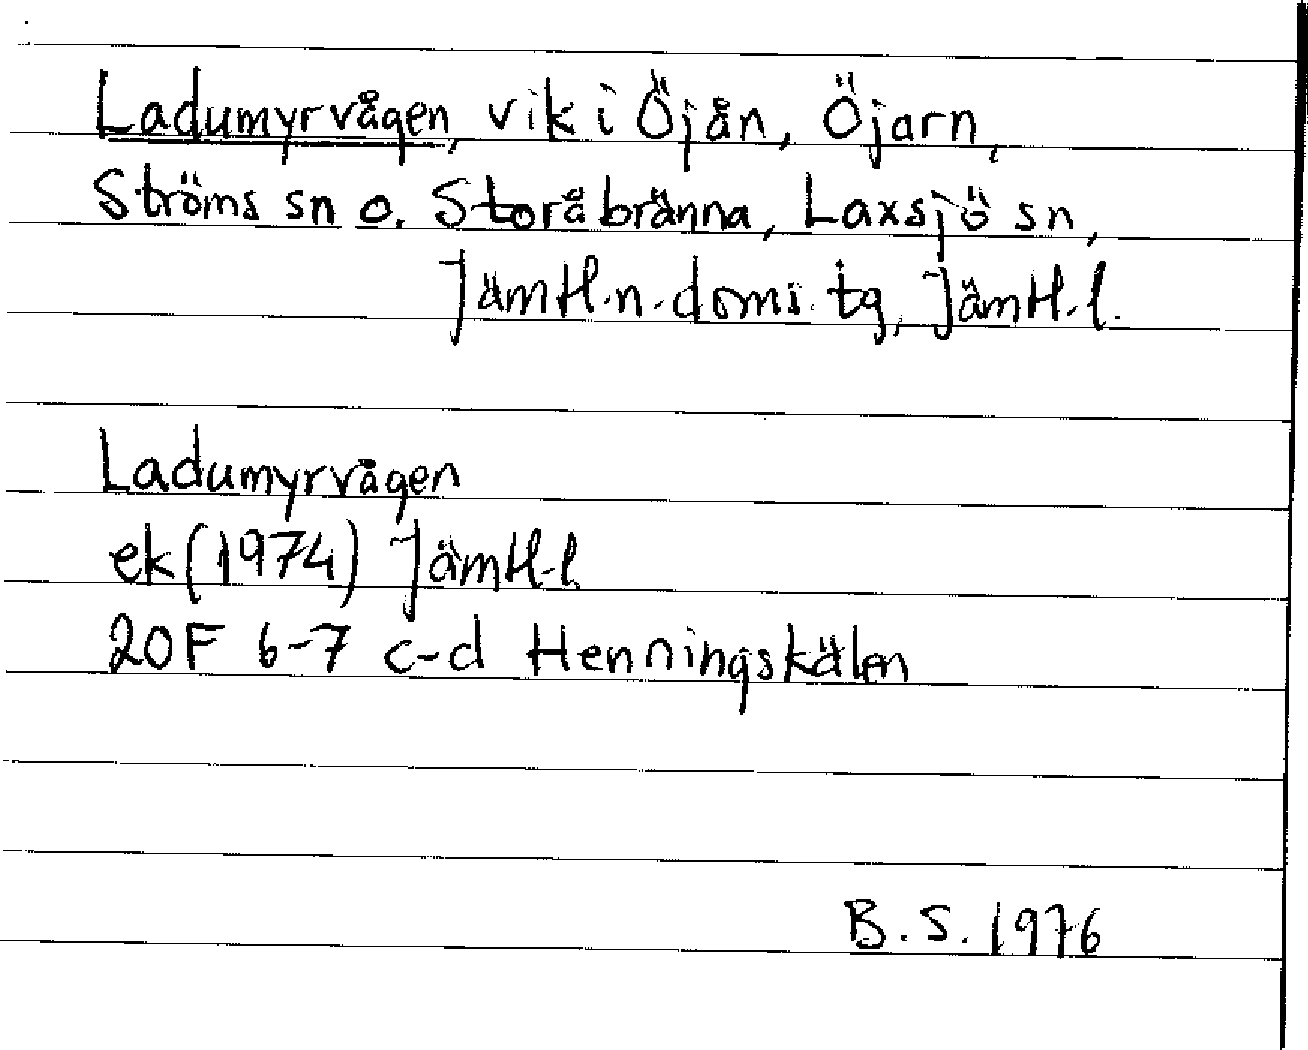 Ladumyrvågen, vik i Öjån, Öjarn,
Ströms sn o. Storåbränna, Laxsjö sn,
Jämtl. n. doms. tg, Jämtl. l.
Ladumyrvågen
ek (1974) Jämtl. l.
20F 6-7 c-d Henningskälen
B.S. 1976